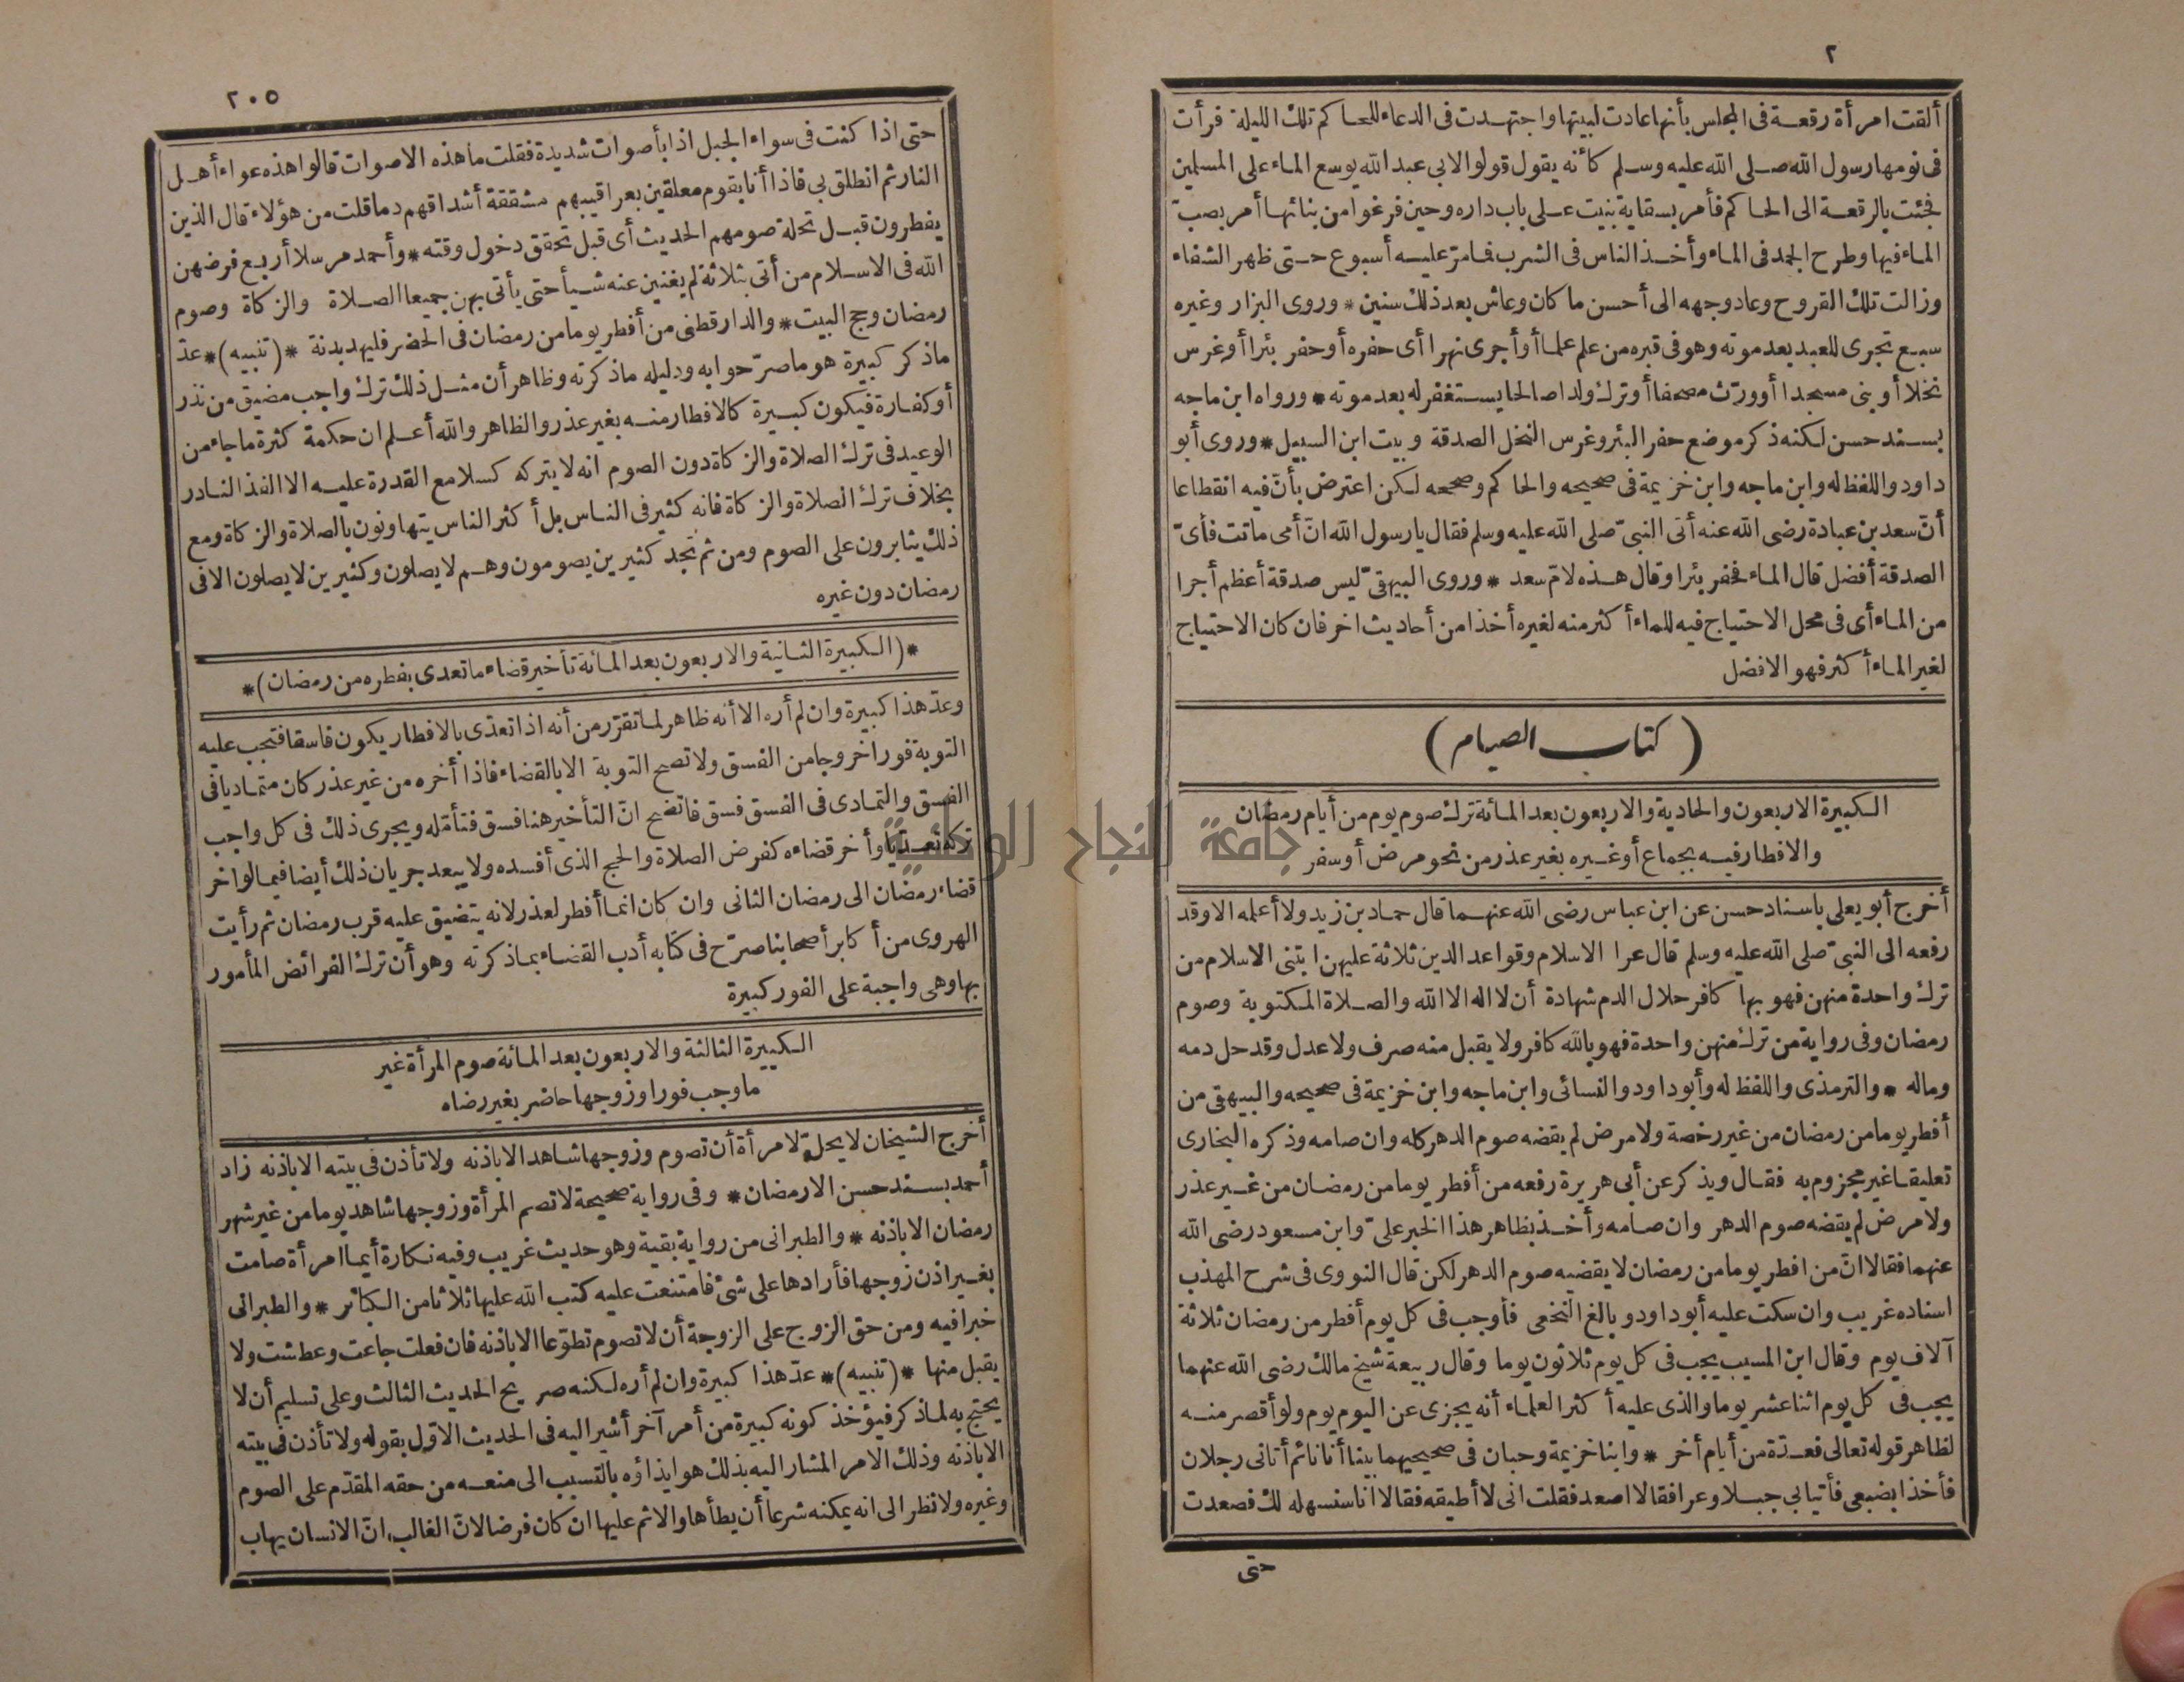 ٢
ألقت امرأة رقعة فى المجلس بأنها عادت لبيتها واجتهدت فى الدعاء للحاكم تلك الليلة فرأت
فى نومها رسول الله صلى الله عليه وسلم كأنه يقول قولوا لابى عبد الله يوسع الماء على المسلمين
فجئت بالرقعة الى الحاكم فأمر بسقاية بنيت على باب داره وحين فرغوا من بنائها أمر بصب
الماء فيها وطرح الجمد فى الماء وأخذ الناس فى الشرب فما مر عليه أسبوع حتى ظهر الشفاء
وزالت تلك القروح وعاد وجهه الى أحسن ما كان وعاش بعد ذلك سنين * وروى البزار وغيره
سبع تجرى للعبد بعد موته وهو فى قبره من علم علما أو أجرى نهرا أى حفره أو حفر بئرا أو غرس
نخلا أو بنى مسجدا أو ورّث مصحفا أو ترك ولدا صالحا يستغفر له بعد موته * ورواه ابن ماجه
بسند حسن لكنه ذكر موضع حفر البئر وغرس النخل الصدقة وبيت ابن السبيل * وروى أبو
داود واللفظ له وابن ماجه وابن خزيمة فى صحيحه والحاكم وصححه لكن اعترض بأنّ فيه انقطاعا
أنّ سعد بن عبادة رضى الله عنه أتى النبىّ صلى الله عليه وسلم فقال يا رسول الله انّ أمى ماتت فأىّ
الصدقة أفضل قال الماء فحفر بئرا وقال هذه لامّ سعد * وروى البيهقىّ ليس صدقة أعظم أجرا
من الماء أى فى محل الاحتياج فيه للماء أكثر منه لغيره أخذا من أحاديث اخر فان كان الاحتياج
لغير الماء أكثر فهو الافضل
(كتاب الصيام)
الكبيرة الاربعون والحادية والاربعون بعد المائة ترك صوم يوم من أيام رمضان
والافطار فيه بجماع أو غيره بغير عذر من نحو مرض أو سفر
أخرج أبو يعلى باسناد حسن عن ابن عباس رضى الله عنهما قال حماد بن زيد ولا أعلمه الا وقد
رفعه الى النبىّ صلى الله عليه وسلم قال عرا الاسلام وقواعد الدين ثلاثة عليهن ابتنى الاسلام من
ترك واحدة منهن فهو بها كافر حلال الدم شهادة أن لا اله الا الله والصلاة المكتوبة وصوم
رمضان وفى رواية من ترك منهن واحدة فهو بالله كافر ولا يقبل منه صرف ولا عدل وقد حل دمه
وماله * والترمذى واللفظ له وأبو داود والنسائى وابن ماجه وابن خزيمة فى صحيحه والبيهقى من
أفطر يوما من رمضان من غير رخصة ولا مرض لم يقضه صوم الدهر كله وان صامه وذكره البخارى
تعليقا غير مجزوم به فقال ويذكر عن أبى هريرة رفعه من أفطر يوما من رمضان من غير عذر
ولا مرض لم يقضه صوم الدهر وان صامه وأخذ بظاهر هذا الخبر علىّ وابن مسعود رضى الله
عنهما فقالا انّ من افطر يوما من رمضان لا يقضيه صوم الدهر لكن قال النووى فى شرح المهذب
اسناده غريب وان سكت عليه أبو داود وبالغ النخعى فأوجب فى كل يوم أفطر من رمضان ثلاثة
آلاف يوم وقال ابن المسيب يجب فى كل يوم ثلاثون يوما وقال ربيعة شيخ مالك رضى الله عنهما
يجب فى كل يوم اثنا عشر يوما والذى عليه أكثر العلماء أنه يجزى عن اليوم يوم ولو أقصر منه
لظاهر قوله تعالى فعدّة من أيام أخر * وابنا خزيمة وحبان فى صحيحيهما بينا أنا نائم أتانى رجلان
فأخذا بضبعى فأتيا بى جبلا وعرا فقالا اصعد فقلت انى لا أطيقه فقالا انا سنسهله لك فصعدت
حتى
٢٠٥
حتى اذا كنت فى سواء الجبل اذا بأصوات شديدة فقلت ما هذه الاصوات قالوا هذه عواء أهل
النار ثم انطلق بى فاذا أنا بقوم معلقين بعراقيبهم مشققة أشداقهم دما قلت من هؤلاء قال الذين
يفطرون قبل تحلة صومهم الحديث أى قبل تحقق دخول وقته * وأحمد مرسلا أربع فرضهن
الله فى الاسلام من أتى بثلاثة لم يغنين عنه شيأ حتى يأتى بهن جميعا الصلاة والزكاة وصوم
رمضان وحج البيت * والدارقطنى من أفطر يوما من رمضان فى الحضر فليهد بدنة *(تنبيه)* عدّ
ما ذكر كبيرة هو ما صرّحوا به ودليله ما ذكرته وظاهر أن مثل ذلك ترك واجب مضيق من نذر
أو كفارة فيكون كبيرة كالافطار منه بغير عذر والظاهر والله أعلم ان حكمة كثرة ما جاء من
الوعيد فى ترك الصلاة والزكاة دون الصوم انه لا يتركه كسلا مع القدرة عليه الا الفذ النادر
بخلاف ترك الصلاة والزكاة فانه كثير فى الناس بل أكثر الناس يتهاونون بالصلاة والزكاة ومع
ذلك يثابرون على الصوم ومن ثم تجد كثيرين يصومون وهم لا يصلون وكثيرين لا يصلون الا فى
رمضان دون غيره
*(الكبيرة الثانية والاربعون بعد المائة تأخير قضاء ما تعدى بفطره من رمضان)*
وعدّ هذا كبيرة وان لم أره الا أنه ظاهر لما تقرّر من أنه اذا تعدّى بالافطار يكون فاسقا فتجب عليه
التوبة فورا خروجا من الفسق ولا تصح التوبة الا بالقضاء فاذا أخره من غير عذر كان متماديا فى
الفسق والتمادى فى الفسق فسق فاتضح انّ التأخير هنا فسق فتأمّله ويجرى ذلك فى كل واجب
تركه تعدّيا وأخر قضاءه كفرض الصلاة والحج الذى أفسده ولا يبعد جريان ذلك أيضا فيما لو اخر
قضاء رمضان الى رمضان الثانى وان كان انما أفطر لعذر لانه يتضيق عليه قرب رمضان ثم رأيت
الهروى من أكابر أصحابنا صرّح فى كتابه أدب القضاء بما ذكرته وهو أن ترك الفرائض المأمور
بها وهى واجبة على الفور كبيرة
الكبيرة الثالثة والاربعون بعد المائة صوم المرأة غير
ما وجب فورا وزوجها حاضر بغير رضاه
أخرج الشيخان لا يحل لامرأة أن تصوم وزوجها شاهد الا باذنه ولا تأذن فى بيته الا باذنه زاد
أحمد بسند حسن الا رمضان * وفى رواية صحيحة لا تصم المرأة وزوجها شاهد يوما من غير شهر
رمضان الا باذنه * والطبرانى من رواية بقية وهو حديث غريب وفيه نكارة أيما امرأة صامت
بغير اذن زوجها فأرادها على شئ فامتنعت عليه كتب الله عليها ثلاثا من الكبائر * والطبرانى
خبرا فيه ومن حق الزوج على الزوجة أن لا تصوم تطوّعا الا باذنه فان فعلت جاعت وعطشت ولا
يقبل منها *(تنبيه)* عدّ هذا كبيرة وان لم أره لكنه صريح الحديث الثالث وعلى تسليم أن لا
يحتج به لما ذكر فيؤخذ كونه كبيرة من أمر آخر أشير اليه فى الحديث الاوّل بقوله ولا تأذن فى بيته
الا باذنه وذلك الامر المشار اليه بذلك هو ايذاؤه بالتسبب الى منعه من حقه المقدّم على الصوم
وغيره ولا نظر الى انه يمكنه شرعا أن يطأها والاثم عليها ان كان فرضا لانّ الغالب انّ الانسان يهاب
جامعة النجاح الوطنية